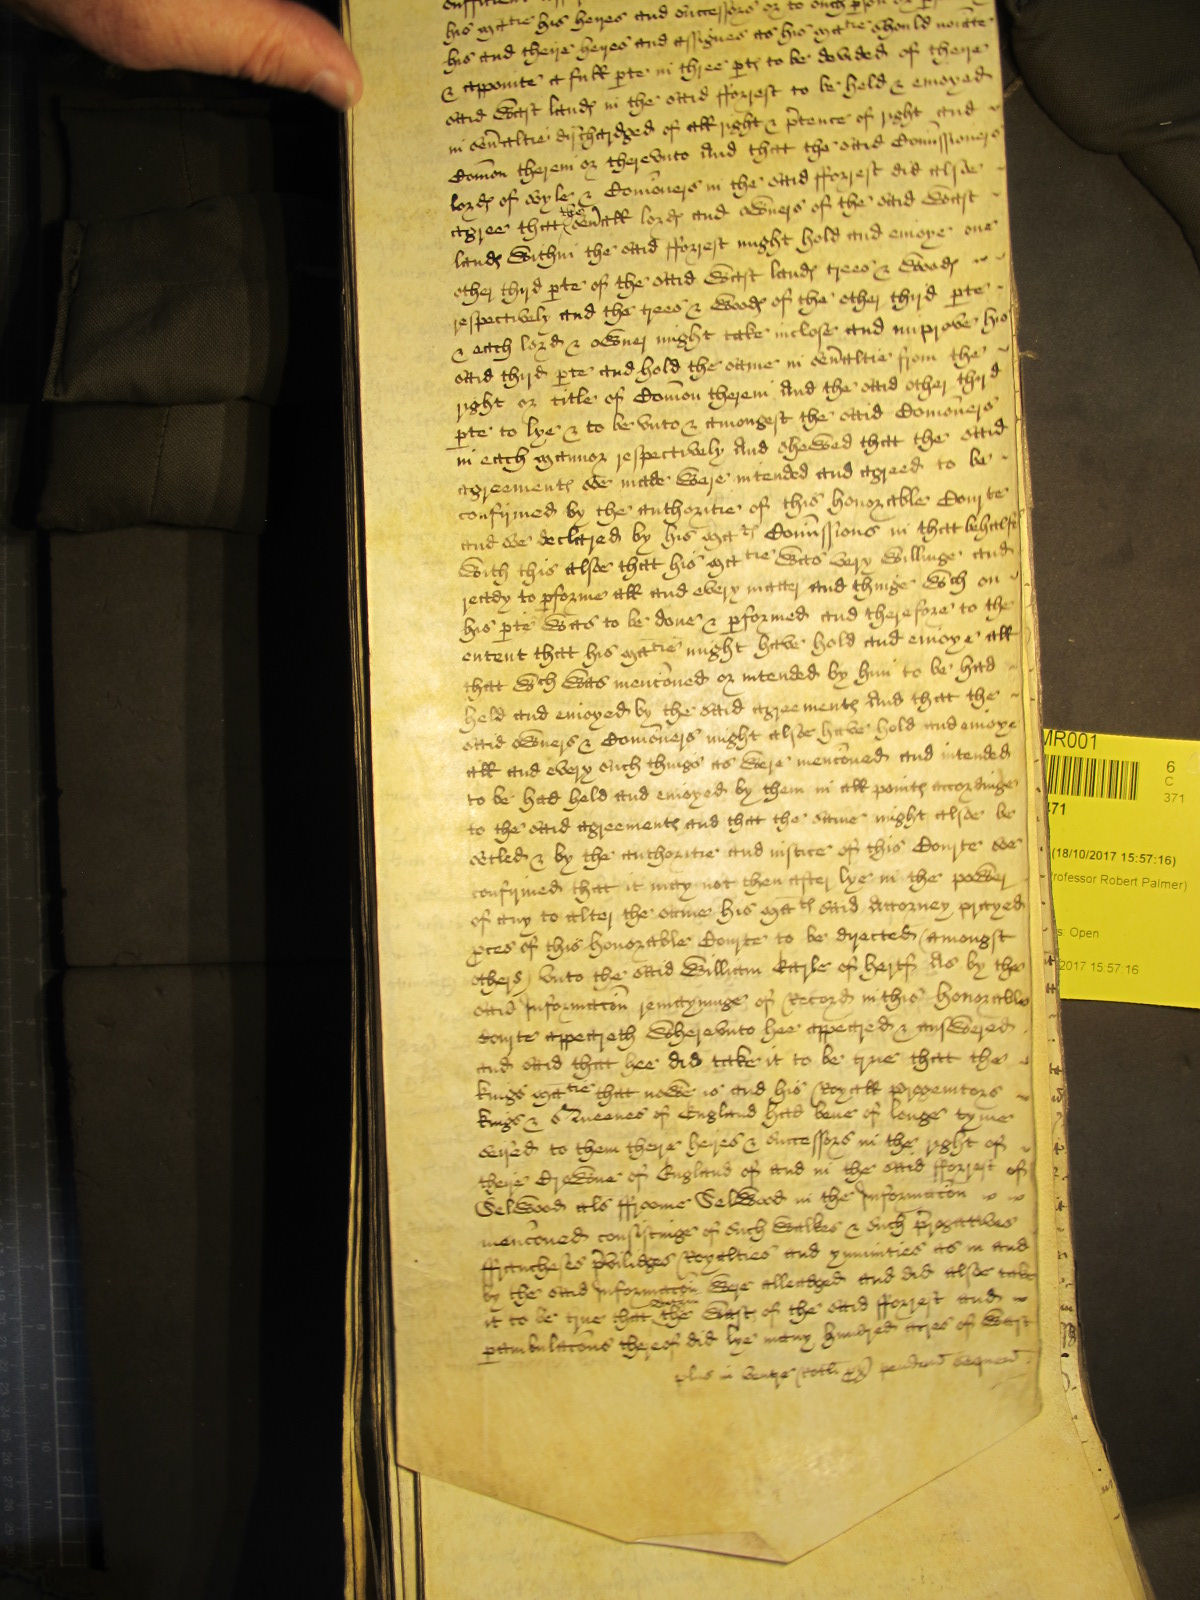 his Matie his heyres and successors or to such pson or
his and theire heyres and assignes as his Matie should noiate
& appointe a full pte in three ptes to be devided of theire
said Wast lands in the said fforrest to be held & enioyed
in sev'altie dischardged of all right & p'tence of right and
Com̄on therein or therevnto And that the said Com̄issioners
lords of soyle & Com̄oners in the said fforrest did alsoe
agree that the sev'all lords and owners of the said Wast
lands within the said fforrest might hold and enioye one
other third pte of the said Wast lands trees & Woods
respectively and the trees & Woods of the other third pte
& each lord & owner might take inclose and improve his
said third pte and hold the same in sev'altie from the
right or title of Com̄on therein And the said other third
pte to lye & to be vnto & amongest the said Com̄oners
in each Mannor respectively And shewed that the said
agreements soe made Were intended and agreed to be
confirmed by the authoritie of this honorable Courte
and soe declared by his Mats Com̄issions in that behalfe
With this alsoe that his Matie Was very Willinge and
ready to pforme all and every matter and thinge Wch on
his pte Was to be done & pformed and therefore to the
entent that his Matie might have hold and enioye all
that Wch Was menc̄oned or intended by him to be had
held and enioyed by the said agreements And that the
said owners & Com̄oners might alsoe have hold and enioye
all and every such things as Were menc̄oned and intended
to be had held and enioyed by them in all points accordinge
to the said agreements and that the same might alsoe be
setled & by the authoritie and iustice of this Courte soe
confirmed that it may not then after lye in the power
of any to alter the same his Mats said Attorney prayed
pces of this honorable Courte to be directed (amongst
others) vnto the said William Earle of hertf As by the
said Informac̄on remayninge of Record in this honorable
Courte appeareth Wherevnto hee appeared & answered
and said that hee did take it to be true that the
kings Matie that nowe is and his Royall progenitors
kings & Queenes of England had bene of longe tyme
seised to them theire heires & successors in the right of
there Crowne of England of and in the said fforrest of
Selwood als ffroome Selwood in the Informac̄on
menc̄oned consistinge of such Walkes & such p'rogatives
ffrancheses p'viledges Royalties and ymunities as in and
by the said Informac̄on Were alleadged and did alsoe take
it to be true that the Wast of the said fforrest and
pambulac̄ons thereof did lye many hundred acres of Wast
plus in

MR001
6
C
371
371
(18/10/2017 15:57:16)
rofessor Robert Palmer)
s Open
2017 15:57:16